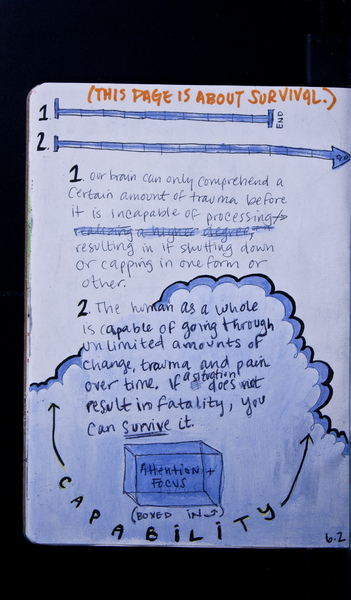 (THIS PAGE IS ABOUT SURVIVAL.)
1.
END
2.
1. our brain can only comprehend a
certain amount of trauma before
it is incapable of processing
realizing a higher degree,
resulting in it shutting down
or capping in one form or
other.
2. The human as a whole
is capable of going through
unlimited amounts of
change, trauma and pain
over time. If a situation does not
result in fatality, you
can survive it.
Attention +
FOCUS
(BOXED IN)
CAPABILITY
6.2